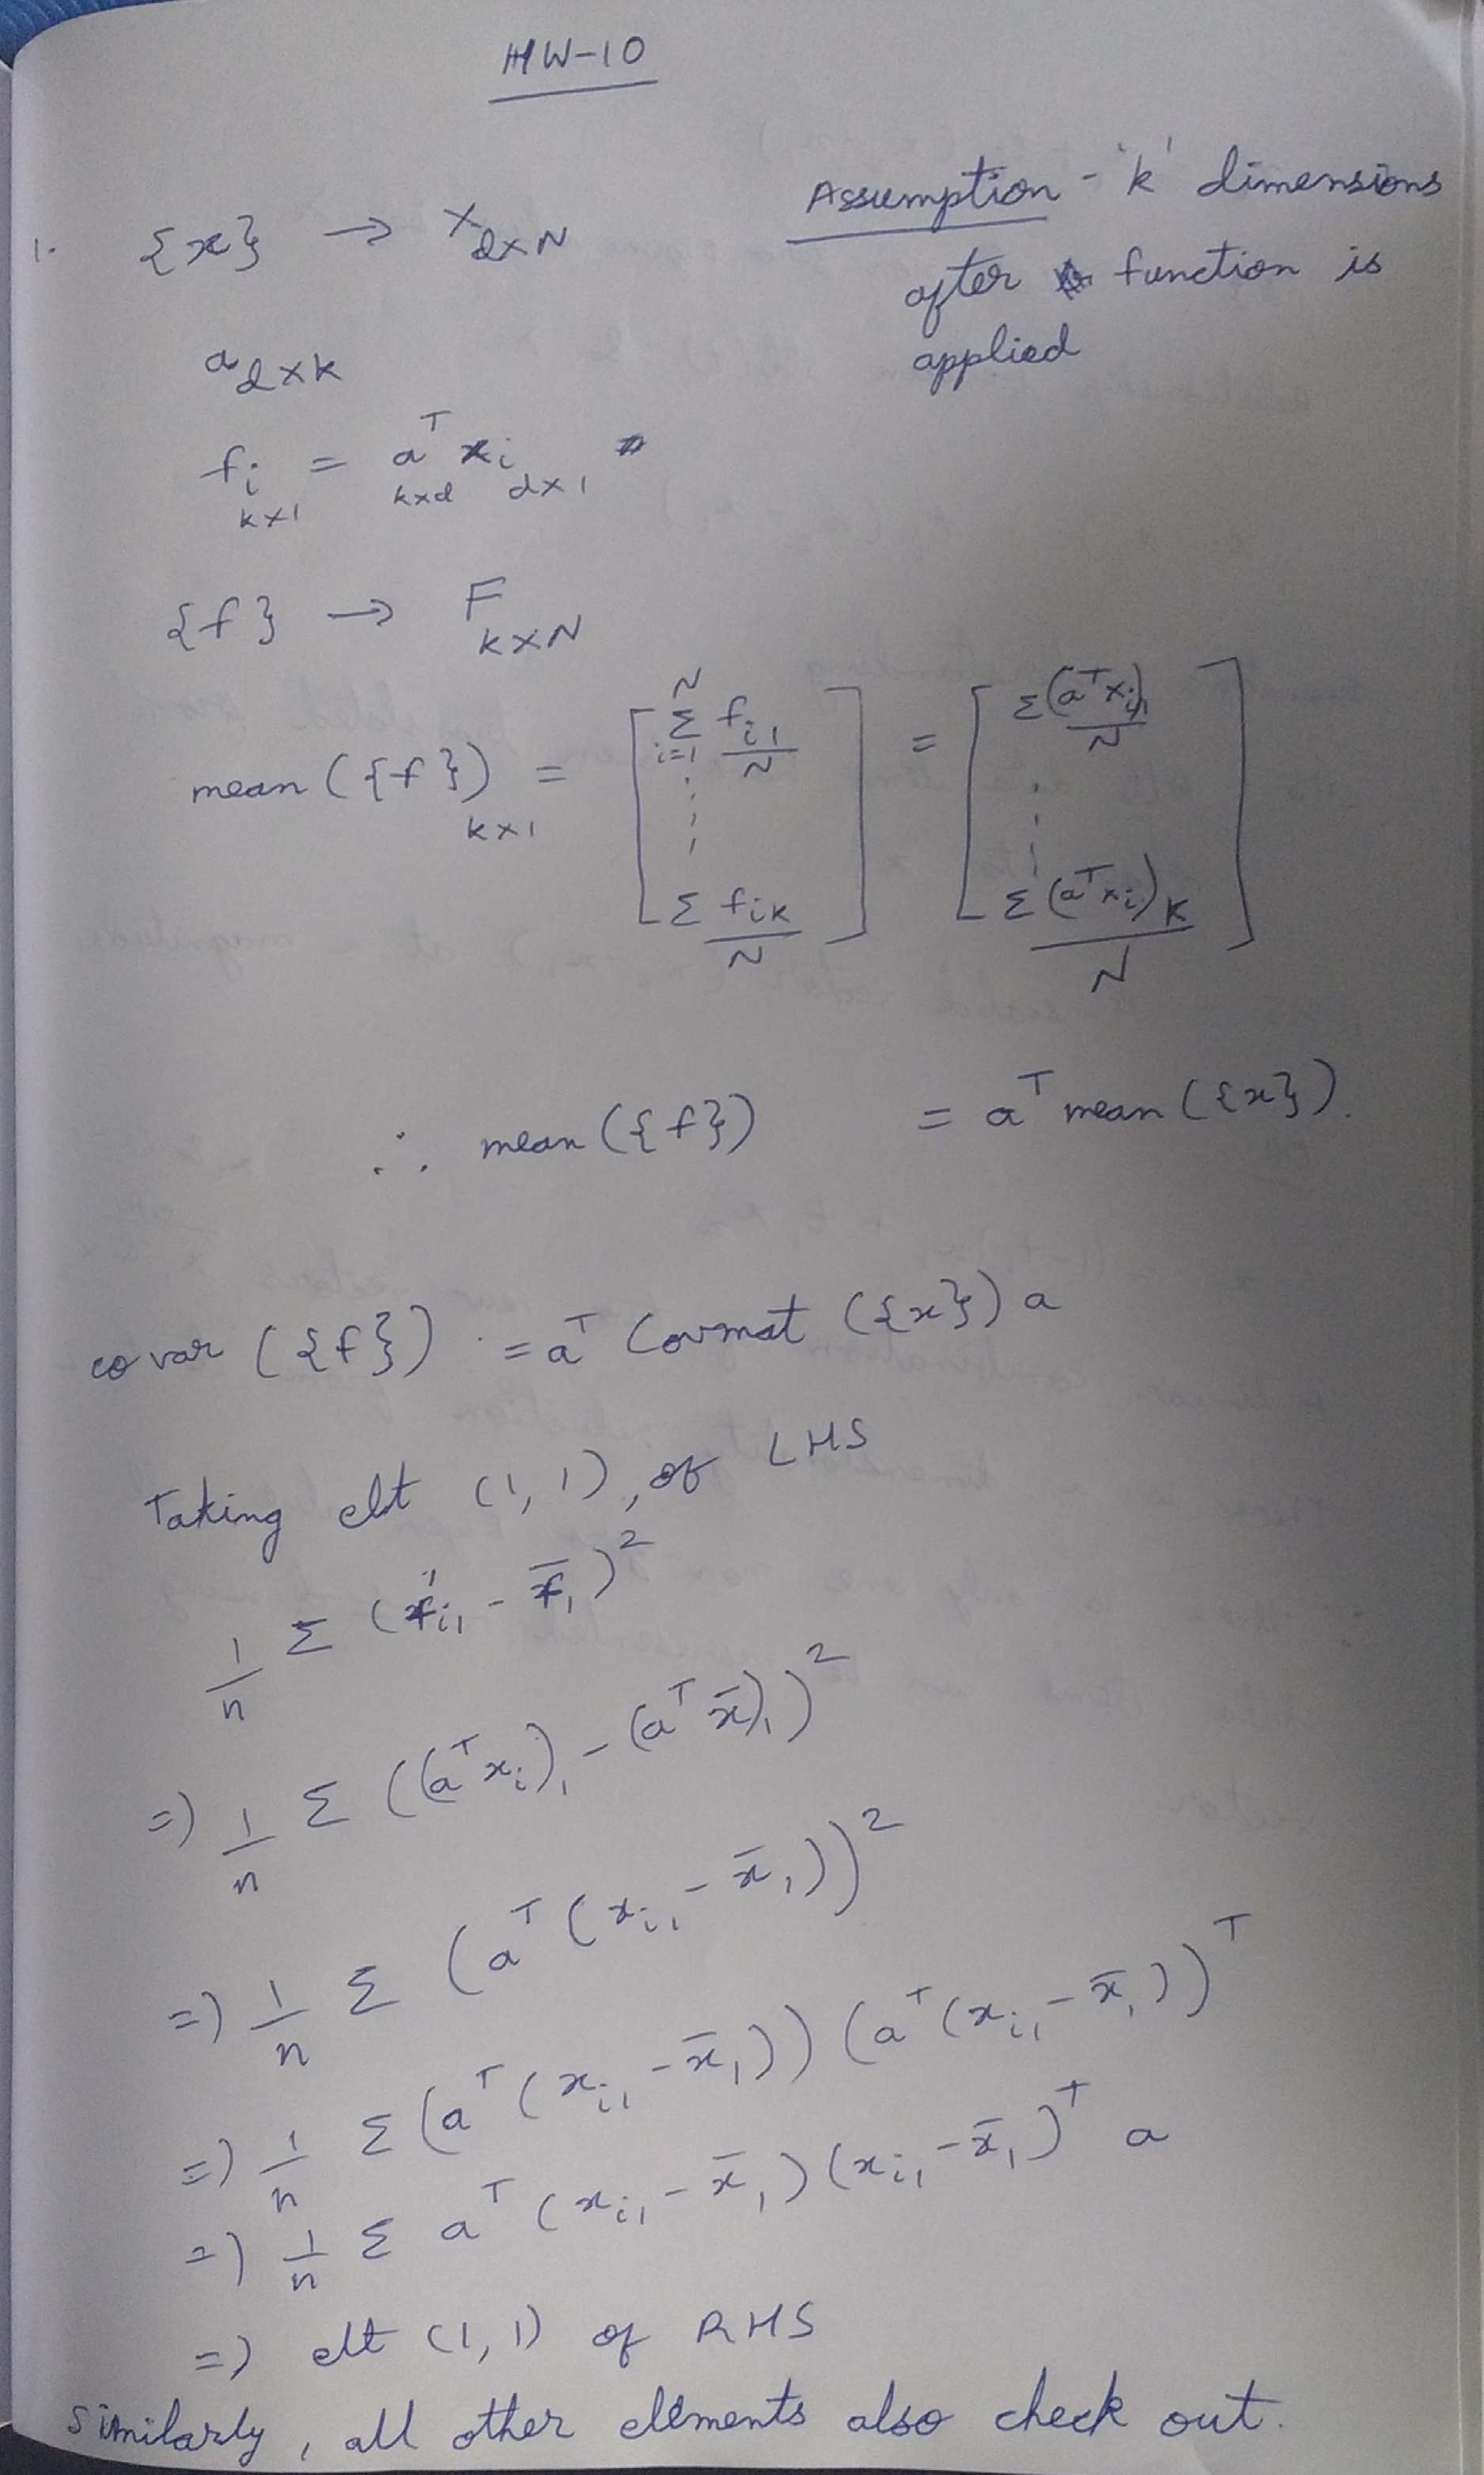 HW-10
1. {x} → X d×N
Assumption - 'k' dimensions
after function is
applied
a d×k
f_i k×1 = a^T k×d x_i d×1
{f} → F k×N
mean ({f}) k×1 = [ Σ_{i=1}^N f_{i1}/N ⋮ Σ f_{ik}/N ] = [ Σ(a^T x_i)_1/N ⋮ Σ(a^T x_i)_k/N ]
∴ mean ({f}) = a^T mean ({x}).
covar ({f}) = a^T Covmat ({x}) a
Taking elt (1,1), of LHS
1/n Σ (f_{i1} - f̄_1)^2
=) 1/n Σ ((a^T x_i)_1 - (a^T x̄)_1)^2
=) 1/n Σ (a^T (x_{i1} - x̄_1))^2
=) 1/n Σ (a^T (x_{i1} - x̄_1)) (a^T (x_{i1} - x̄_1))^T
=) 1/n Σ a^T (x_{i1} - x̄_1) (x_{i1} - x̄_1)^T a
=) elt (1,1) of RHS
Similarly, all other elements also check out.